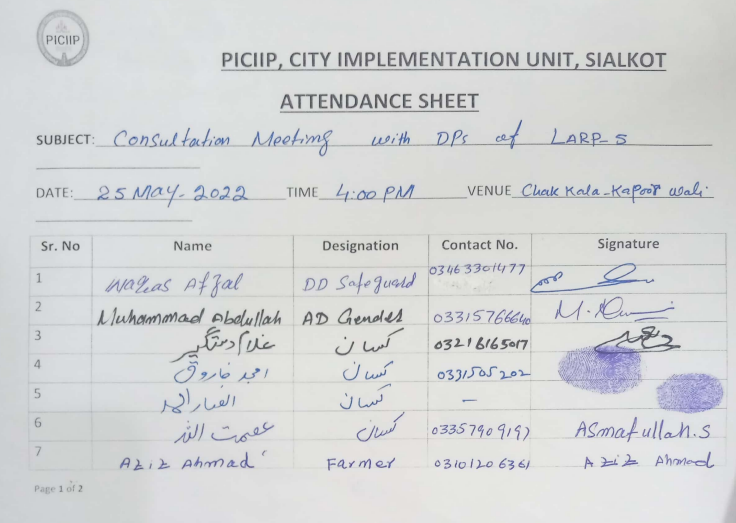 PICIIP
PICIIP, CITY IMPLEMENTATION UNIT, SIALKOT
ATTENDANCE SHEET
SUBJECT: Consultation Meeting with DPs of LARP-5
DATE: 25 MAY-2022 TIME 4:00 PM VENUE Chak Kala-Kapoor wali.
Sr. No Name Designation Contact No. Signature
1 Waqas Afzal DD Safeguard 03463301477
2 Muhammad Abdullah AD Gender 03315766640
3 غلام دستگیر کسان 03216165017
4 امجد فاروق کسان 0331505202
5 کسان –
6 عصمت اللہ کسان 03357909197 ASmatullah.S
7 Aziz Ahmad Farmer 03101206361 Aziz Ahmad
Page 1 of 2